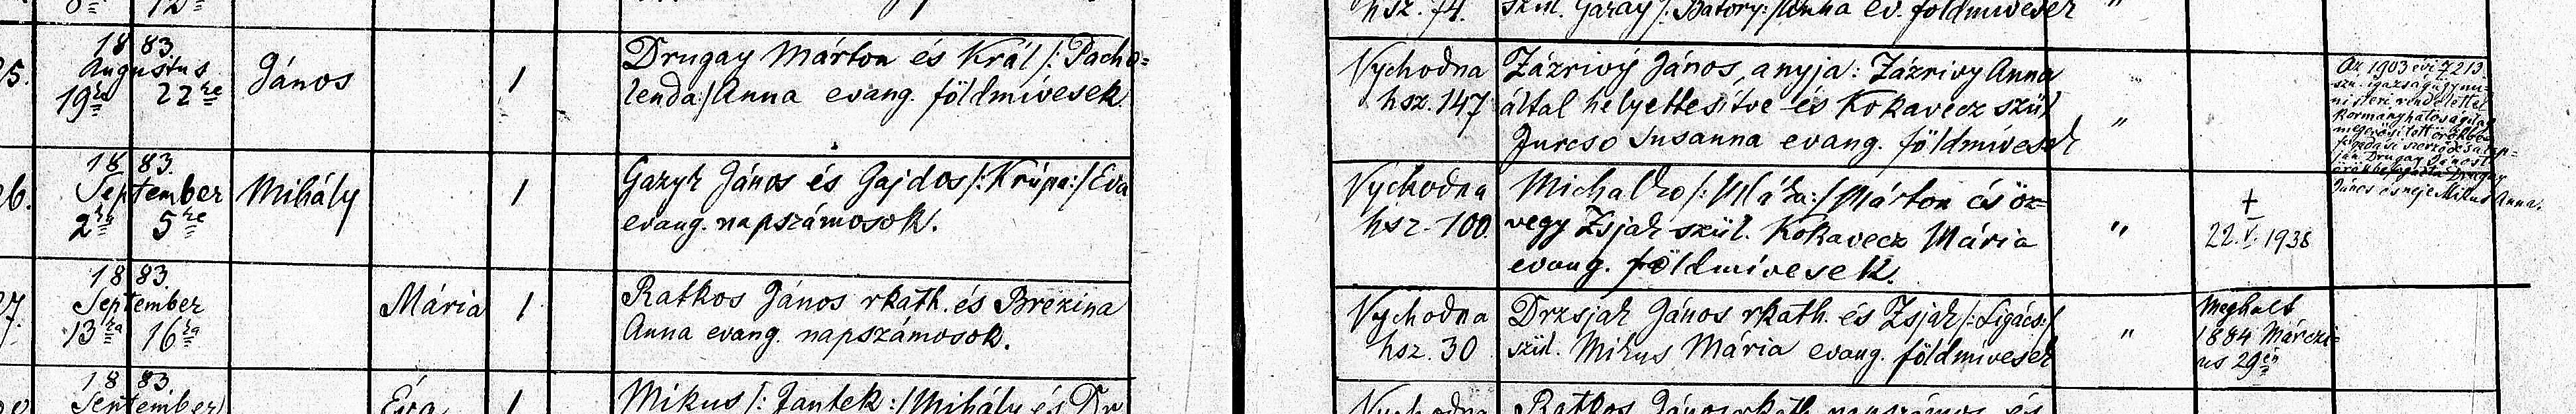 hsz. 74. szül. Garay /:Bátory:/ Anna ev. földmívesek "
5.
18 83.
Augustus
19én 22ke
János
1
Drugay Márton és Král /:Pacho=
lenda:/ Anna evang. földmívesek.
Vychodna
hsz. 147
Zázrivý János, anyja: Zázrivy Anna
által helyettesítve és Kokavecz szül
Jurcso Susanna evang. földmívesek
"
Az 1903 évi 7213.
sz. igazságügymi-
nisteri rendelettel
Kormányhatóságilag
megerősített örökbe
fogadási szerződés alap-
ján Drugay Jánost
örökbefogadta Drugay
János és neje Mikus Anna.
6.
18 83.
September
2án 5ke
Mihály
1
Gazyk János és Gajdos /:Krúpa:/ Éva
evang. napszámosok.
Vychodna
hsz. 100.
Michalko /:Máza:/ Márton és öz=
vegy Zsjak szül. Kokavecz Mária
evang. földmívesek.
"
+
22.V.1938
7.
18 83.
September
13ka 16ka
Mária
1
Ratkos János rkath. és Brezina
Anna evang. napszámosok.
Vychodna
hsz. 30
Drzsjak János rkath. és Zsjak /:Ligács:/
szül. Mikus Mária evang. földmívesek
"
Meghalt
1884 Márczi=
us 29én
18 83.
September
Éva
1
Mikus /:Jantek:/ Mihály és Dr
Vychodna
Ratkos János rkath. napszámos és